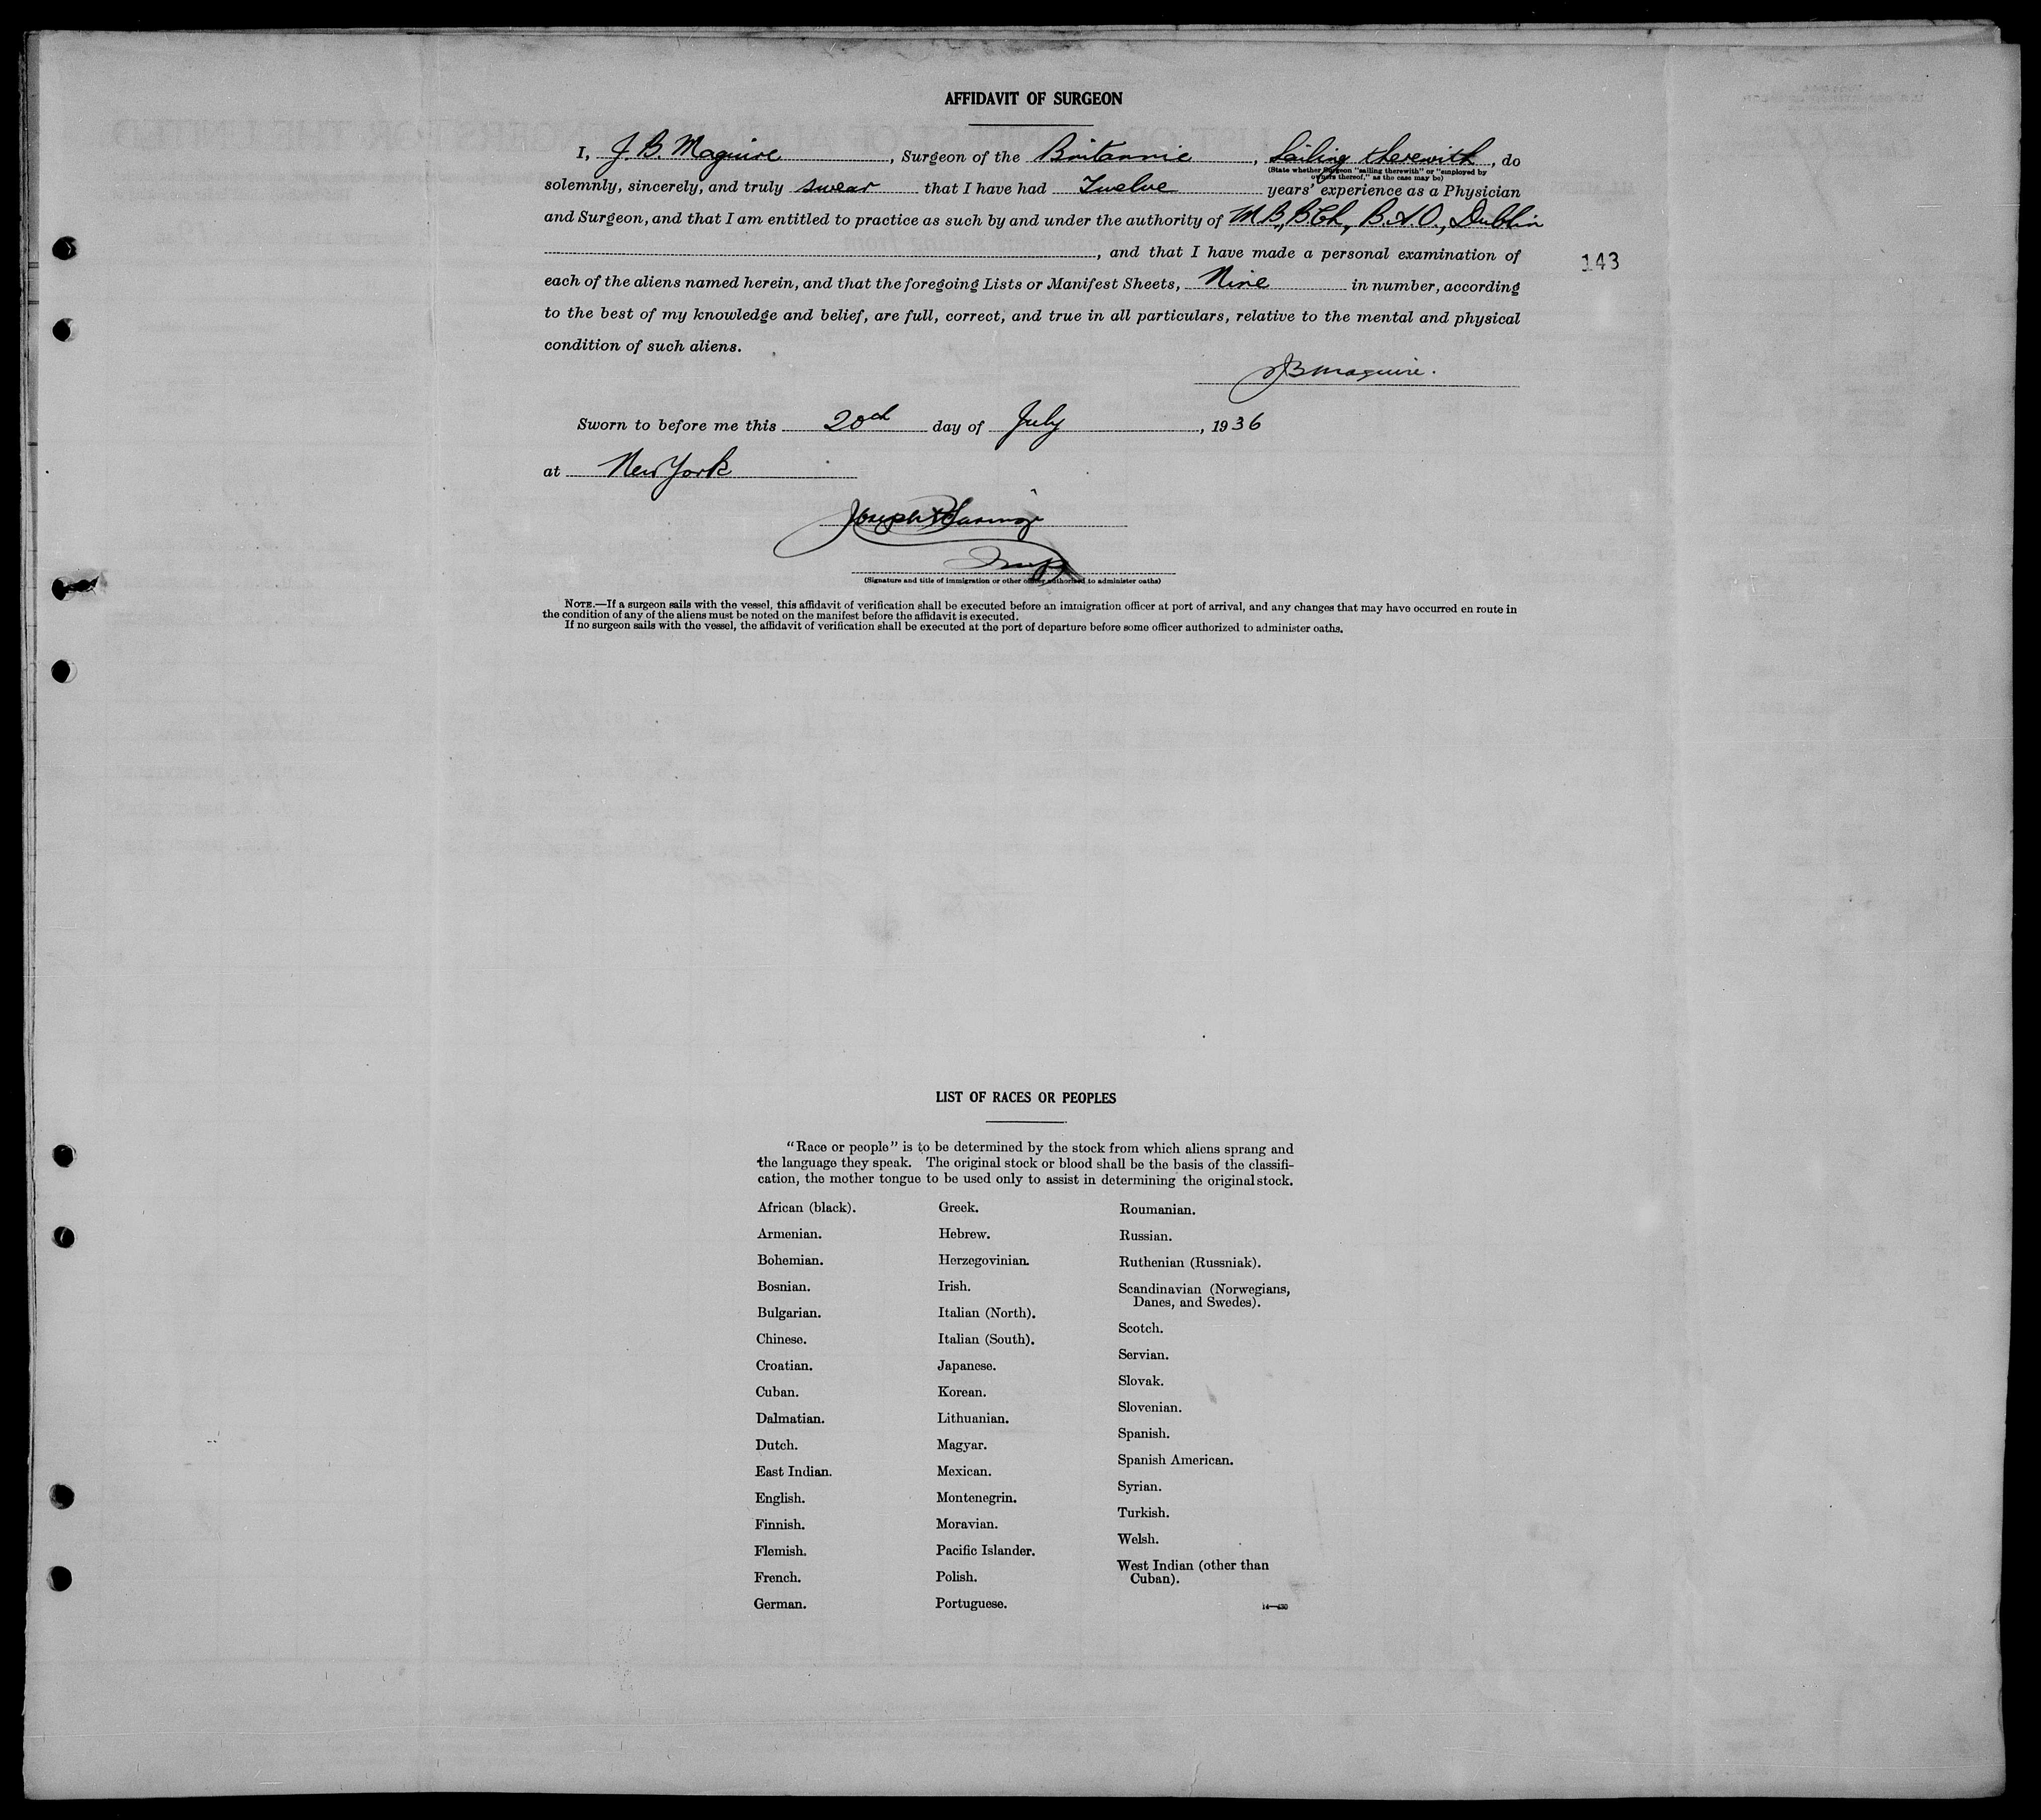 AFFIDAVIT OF SURGEON
I, J. B. Maguire, Surgeon of the Britannic, Sailing therewith, do
(State whether Surgeon "sailing therewith" or "employed by
owners thereof," as the case may be)
solemnly, sincerely, and truly swear that I have had Twelve years' experience as a Physician
and Surgeon, and that I am entitled to practice as such by and under the authority of M.B., B.Ch., B.A.O., Dublin
, and that I have made a personal examination of
143
each of the aliens named herein, and that the foregoing Lists or Manifest Sheets, Nine in number, according
to the best of my knowledge and belief, are full, correct, and true in all particulars, relative to the mental and physical
condition of such aliens.
JB Maguire.
Sworn to before me this 20th day of July, 1936
at New York
Joseph
(Signature and title of immigration or other officer authorized to administer oaths)
NOTE.—If a surgeon sails with the vessel, this affidavit of verification shall be executed before an immigration officer at port of arrival, and any changes that may have occurred en route in
the condition of any of the aliens must be noted on the manifest before the affidavit is executed.
If no surgeon sails with the vessel, the affidavit of verification shall be executed at the port of departure before some officer authorized to administer oaths.
LIST OF RACES OR PEOPLES
"Race or people" is to be determined by the stock from which aliens sprang and
the language they speak. The original stock or blood shall be the basis of the classifi-
cation, the mother tongue to be used only to assist in determining the original stock.
African (black).
Armenian.
Bohemian.
Bosnian.
Bulgarian.
Chinese.
Croatian.
Cuban.
Dalmatian.
Dutch.
East Indian.
English.
Finnish.
Flemish.
French.
German.
Greek.
Hebrew.
Herzegovinian.
Irish.
Italian (North).
Italian (South).
Japanese.
Korean.
Lithuanian.
Magyar.
Mexican.
Montenegrin.
Moravian.
Pacific Islander.
Polish.
Portuguese.
Roumanian.
Russian.
Ruthenian (Russniak).
Scandinavian (Norwegians,
Danes, and Swedes).
Scotch.
Servian.
Slovak.
Slovenian.
Spanish.
Spanish American.
Syrian.
Turkish.
Welsh.
West Indian (other than
Cuban).